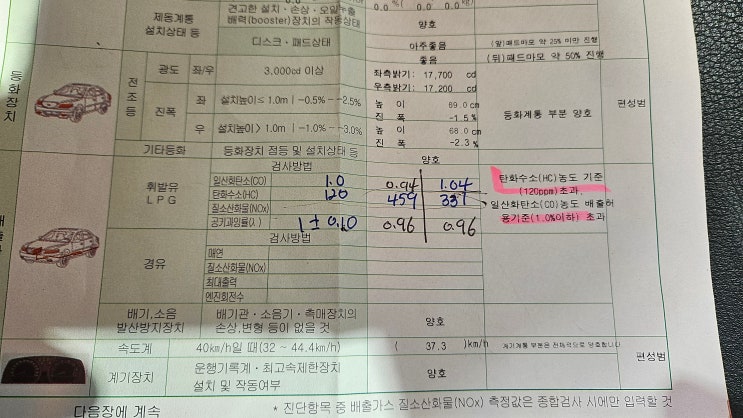 0.0 %( 0.0 0.0 m)
견고한 설치·손상·오일누출
제동계통 배력(booster)장치의 작동상태 양호
설치상태 등
디스크·패드상태 아주좋음 (앞)패드마모 약 25% 미만 진행
좋음 (뒤)패드마모 약 50% 진행
등화장치
전조등
광도 좌/우 3,000cd 이상 좌측밝기: 17,700 cd
우측밝기: 17,200 cd
진폭 좌 설치높이≤ 1.0m | -0.5% ~ -2.5% 높 이 69.0 cm 등화계통 부분 양호 편성범
진 폭 -1.5 %
우 설치높이> 1.0m | -1.0% ~ -3.0% 높 이 68.0 cm
진 폭 -2.3 %
기타등화 등화장치 점등 및 설치상태 등 양호
검사방법
휘발유 LPG
일산화탄소(CO) 1.0 0.94 1.04 탄화수소(HC)농도 기준
탄화수소(HC) 120 459 331 (120ppm)초과,
질소산화물(NOx) 일산화탄소(CO)농도 배출허
공기과잉률(λ) 1±0.10 0.96 0.96 용기준(1.0%이하) 초과
검사방법
경유
매연
질소산화물(NOx)
최대출력
엔진회전수
배기,소음 발산방지장치 배기관·소음기·촉매장치의 손상,변형 등이 없을 것 양호
속도계 40㎞/h일 때(32 ~ 44.4㎞/h) ( 37.3 )㎞/h 계기계통 부분은 전체적으로 양호합니다 편성범
계기장치 운행기록계·최고속제한장치 설치 및 작동여부 양호
다음장에 계속 * 진단항목 중 배출가스 질소산화물(NOx) 측정값은 종합검사 시에만 입력할 것